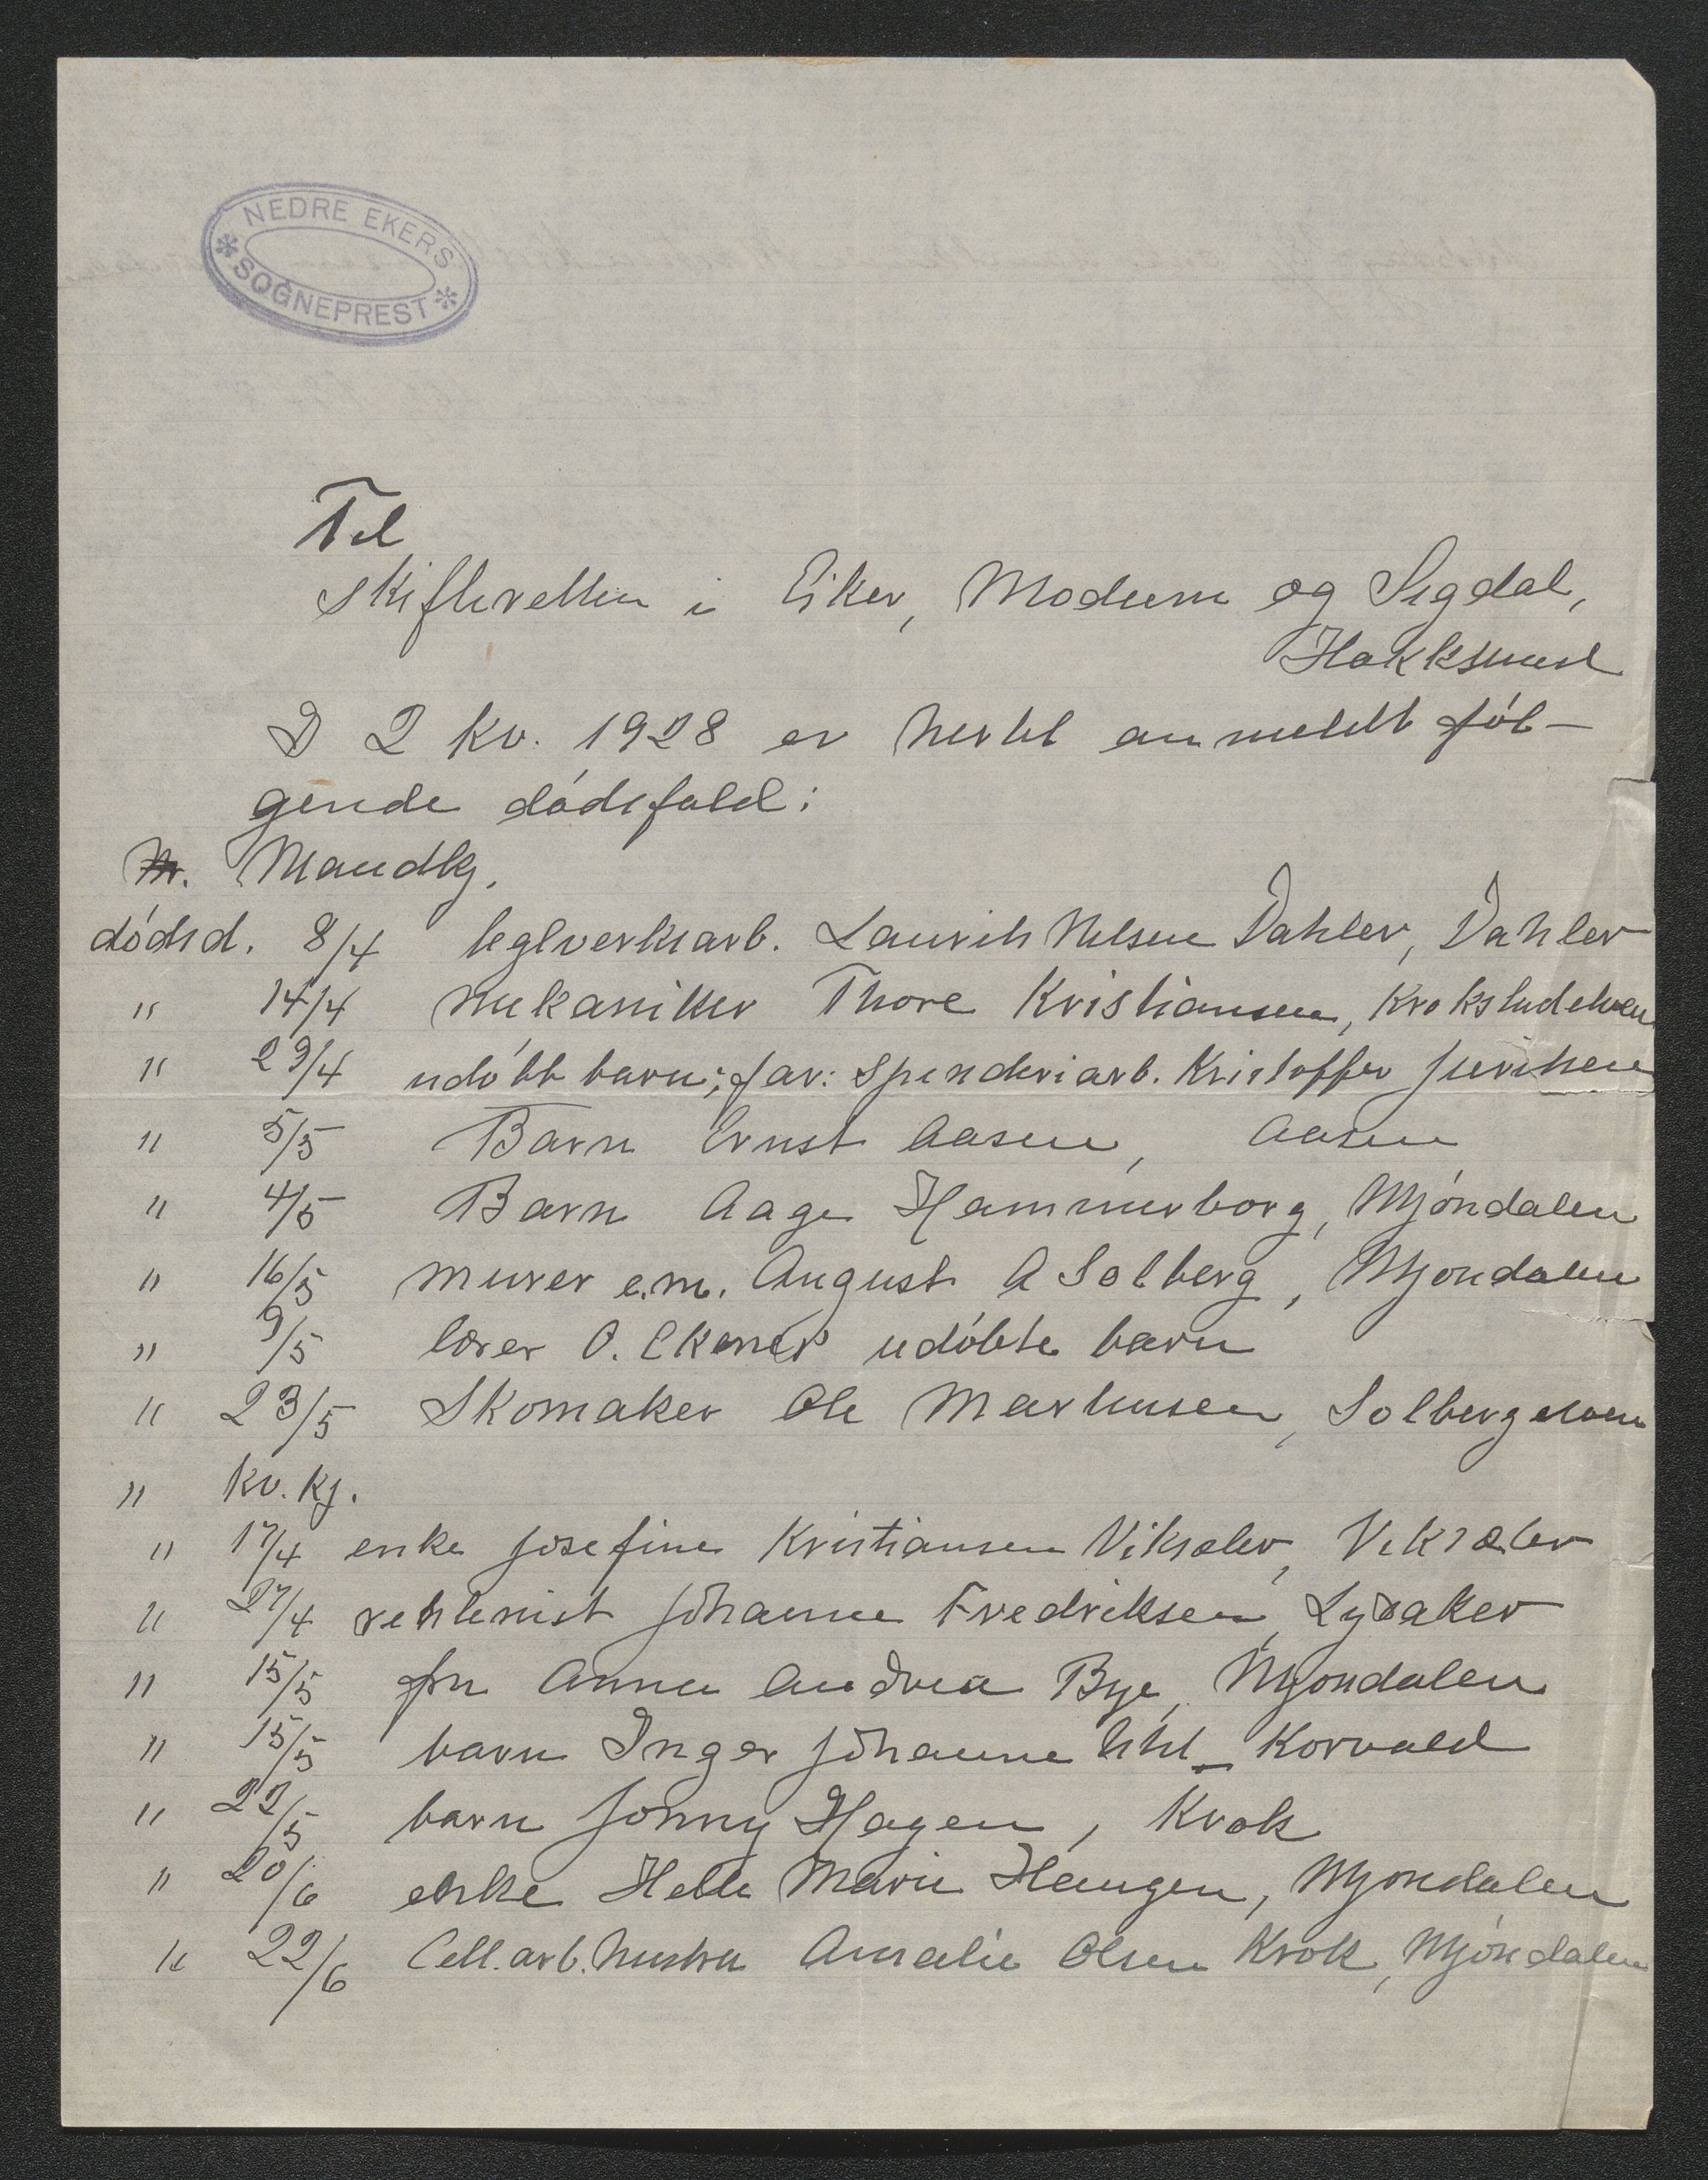 NEDRE EKERS
SOGNEPREST
Til
Skifteretten i Eiker, Modum og Sigdal,
Hokksund
I 2 kv. 1928 er hertil anmeldt föl-
gende dödsfald:
Nr. Mandkj.
dödsd. 8/4 teglverksarb. Laurits Nilsen Dahler, Dahler
" 14/4 mekaniker Thore Kristiansen, Krokstadelven
" 29/4 udöbt barn; far: spinderiarb. Kristoffer
" 5/5 Barn Ernst Aasen, Aasen
" 4/5 Barn Aage Hammerborg, Mjöndalen
" 16/5 murer e.m. August A Solberg, Mjöndalen
" 9/5 lærer O. Ekenes udöbte barn
" 23/5 Skomaker Ole Martinsen, Solbergelven
" Kv. kj.
" 17/4 enke Josefine Kristiansen Viksæter, Viksæter
" 27/4 Johanne Fredriksen, Lysaker
" 15/5 fru Anna Andrea Bye, Mjöndalen
" 15/5 barn Inger Johanne Korvald
" 22/5 barn Jonny Hagen, Krok
" 20/6 enke Helle Marie Haugen, Mjöndalen
" 22/6 Cell.arb. hustru Amalie Olsen Krok, Mjöndalen